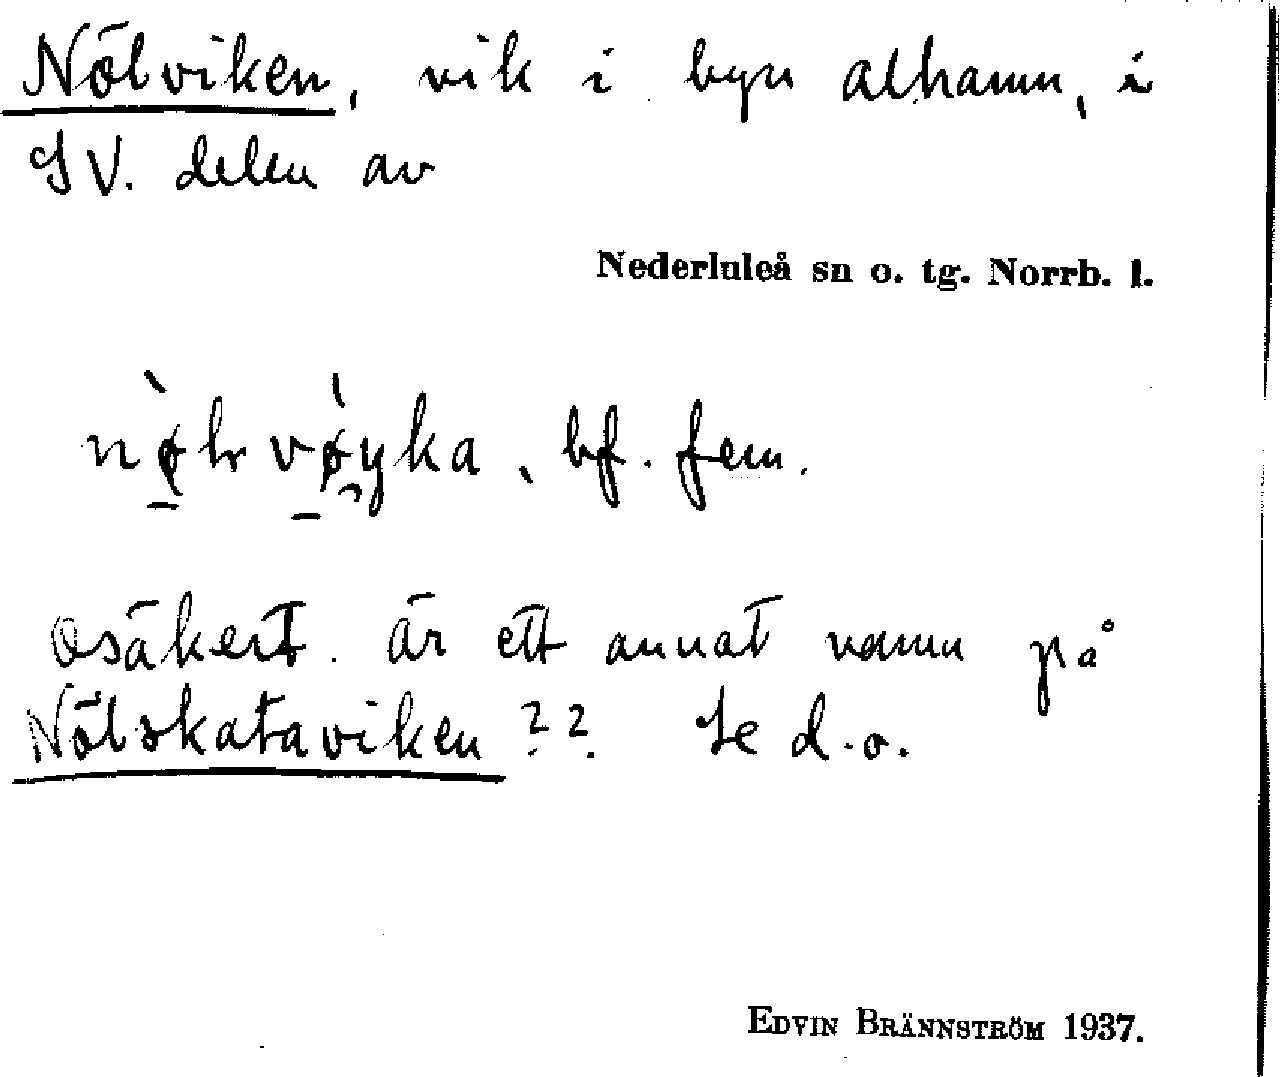 Nölviken, vik i byn alhamn, i
SV. delen av
Nederluleå sn o. tg. Norrb. l.
bf. fem.
Osäkert. är ett annat namn på
Nölskataviken?? Se d.o.
EDVIN BRÄNNSTRÖM 1937.